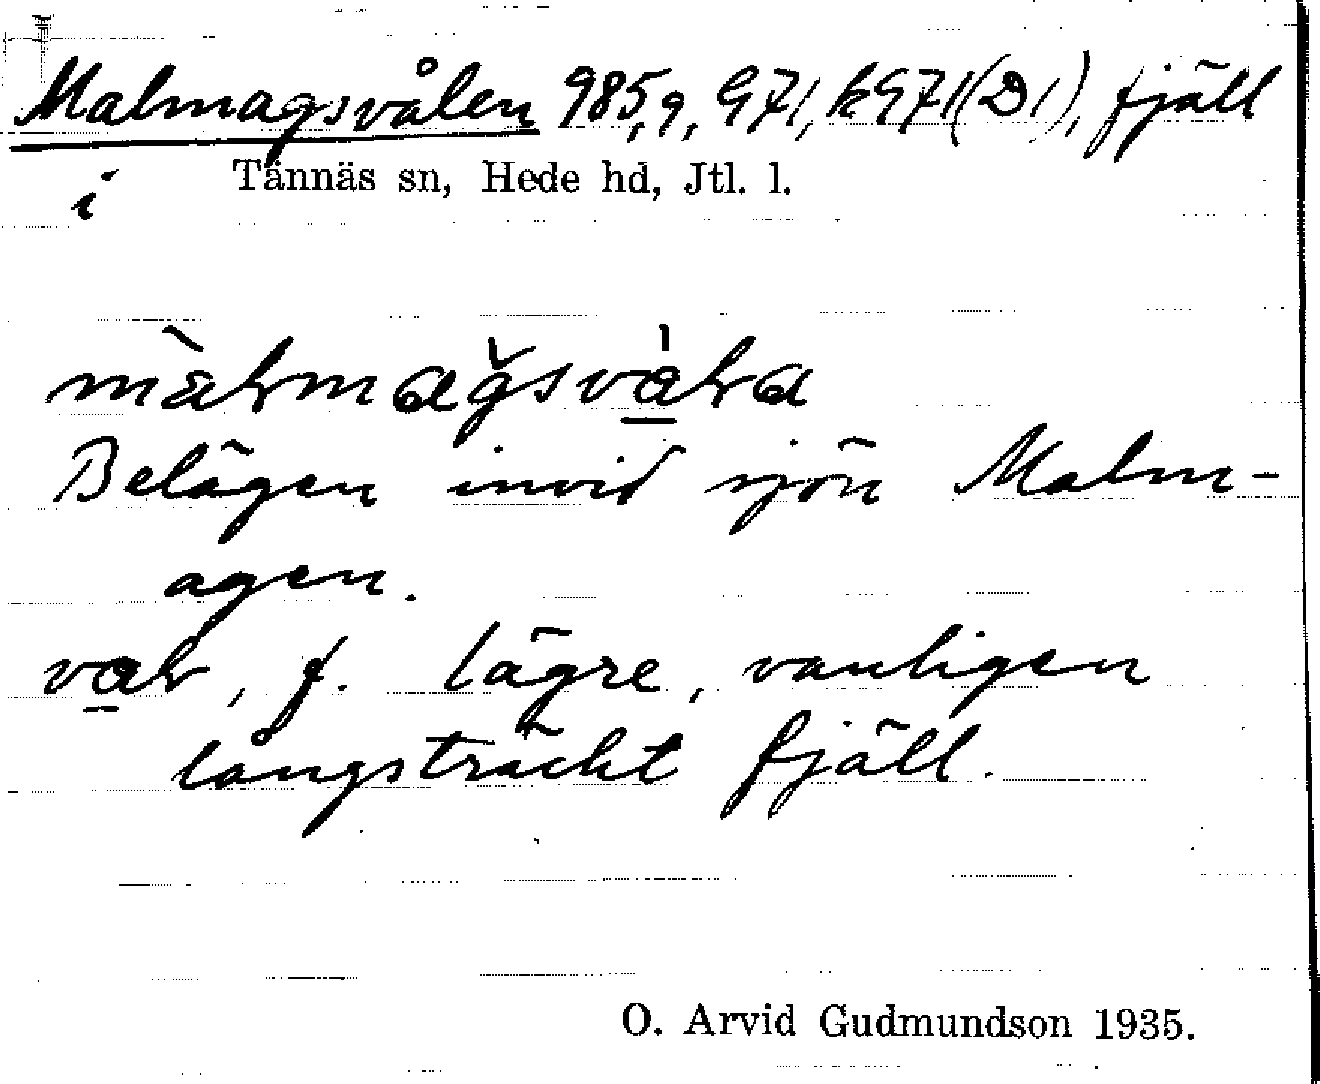 Malmagsvålen 985,9, 971, k971(D1), fjäll
i Tännäs sn, Hede hd, Jtl. l.
Belägen invid sjön Malm-
agen.
f. lägre, vanligen
långsträckt fjäll.
O. Arvid Gudmundson 1935.